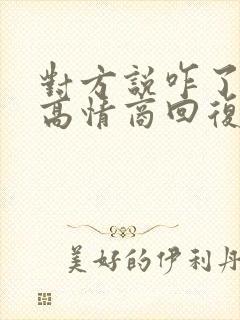 對方説咋了
高情商回復
美好的伊利丹